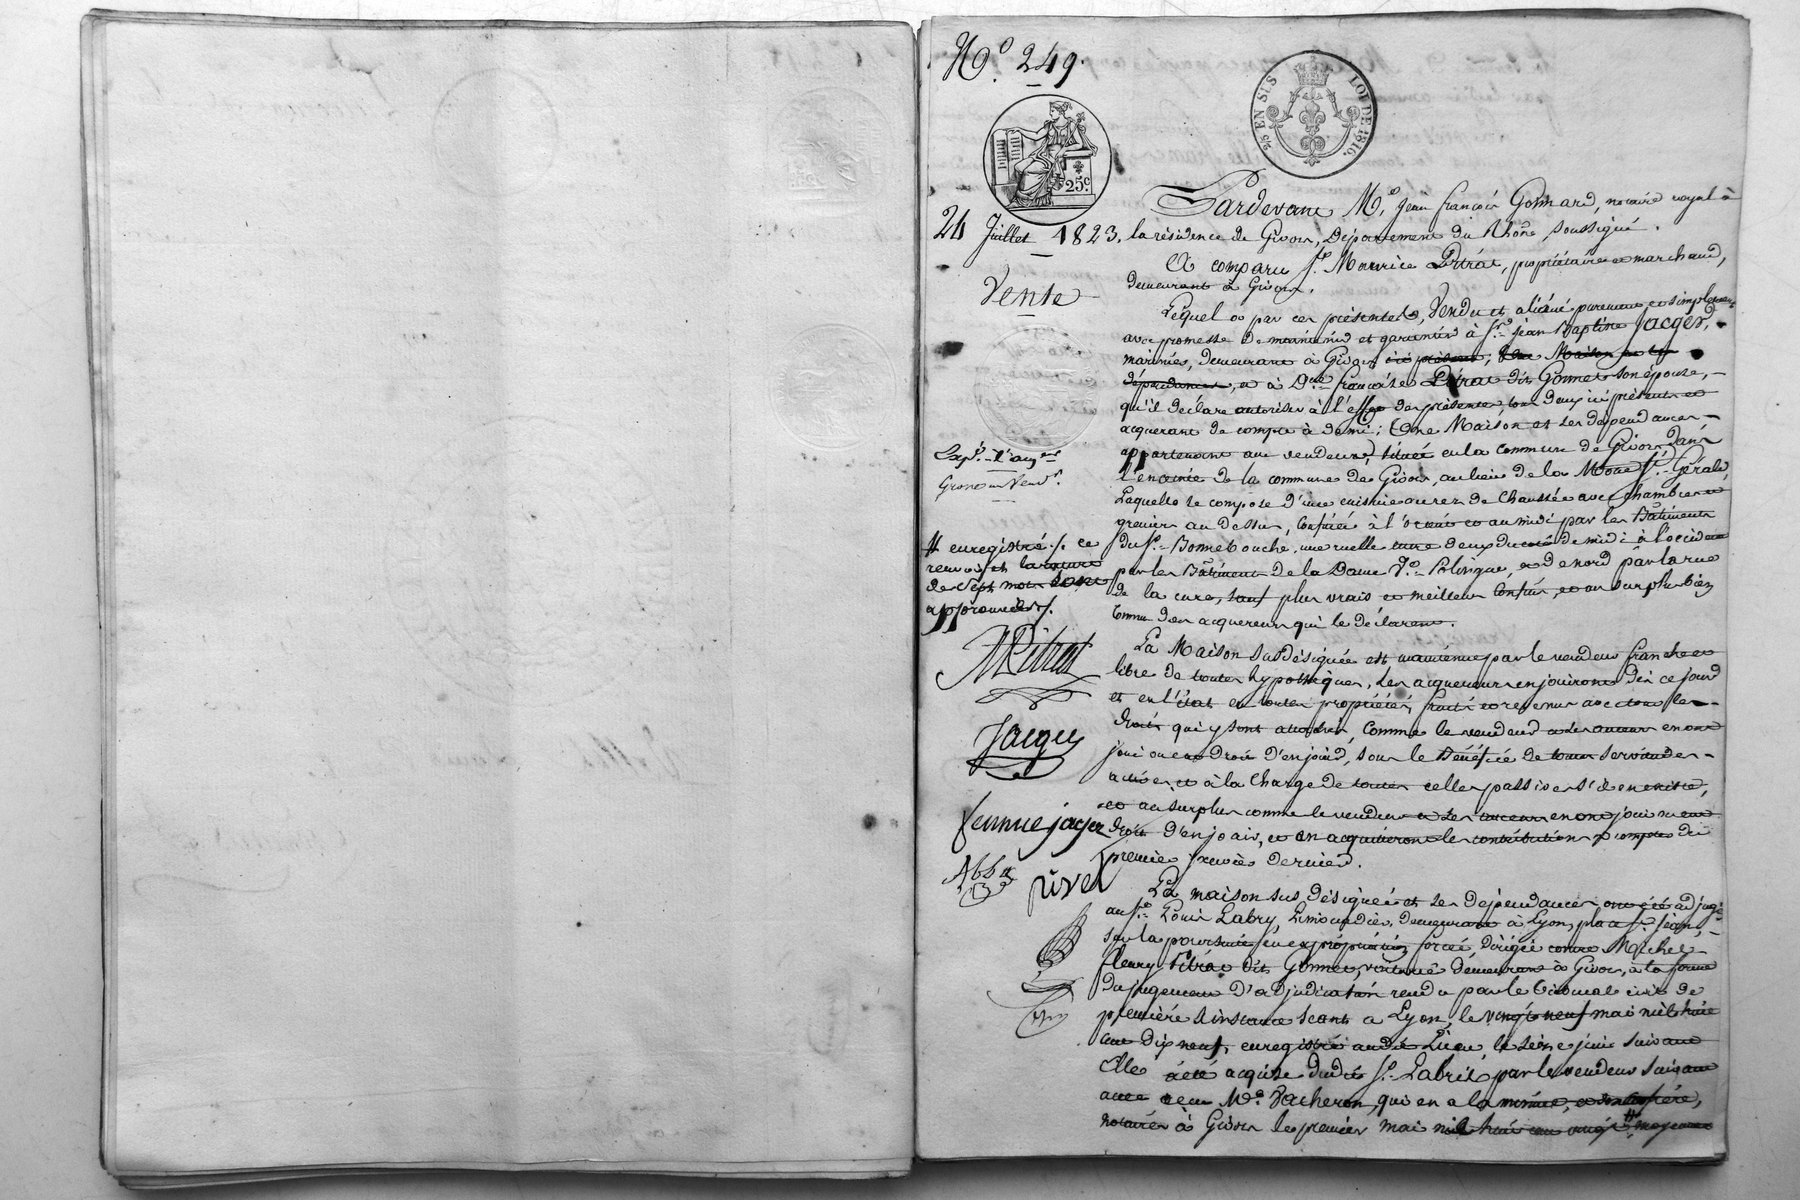 N.º 249.
2/5 EN SUS
LOI DE 1816.
25.c
24 Juillet 1823.
Vente
Exp.
enregistré ./. ce
renvoi et la rature
de Sept mots sont
approuvés ./.
MPitrat
Jacques
femme jacger
rivet
Pardevant M.e Jean françois Gonnard, notaire royal à
la résidence de Givors, Département du Rhône soussigné.
A comparu S.r Maurice Pitrat, propriétaire et marchand,
demeurant à Givors.
Lequel a par ces présentes, Vendu et aliéné purement et simplement
avec promesse de maintenir et garantir à S.r Jean Baptiste Jacger,
marinier, demeurant à Givors ici présent, Une Maison et ses
dépendances, et à D.me françoise Pitrat dit Gonnet son épouse,
qu'il déclare autoriser à l'effet des présentes, tous deux ici présents et
acquerant de compte à demi; Une Maison et ses dépendances
appartenant au vendeur, située en la commune de Givors, dans
l'enceinte de la commune de Givors, au lieu de la St. Gérald
Laquelle se compose d'une cuisine au rez de chaussée avec chambre et
grenier au dessus, Confinée à l'orient et au midi par les Bâtiments
du S.r Bonnebouche, une ruelle entre deux du coté de midi à l'occident
par les Bâtiments de la Dame V.e Polingue, et de nord par la rue
de la cure, sauf plus vrais et meilleurs Confins, et au surplus bien
Connue des acquereurs qui le déclarent.
La Maison susdésignée est maintenue par le vendeur franche et
libre de toutes hypothèques, les acquereurs en jouiront dès ce jour
et en l'état en toutes propriétés, fruits et revenus avec tous les
droits qui y sont attachés, Comme le vendeur et ses auteurs en ont
joui ou eu droit d'en jouir, sous le Bénéfice de toutes servitudes
actives et à la Charge de toutes celles passives s'il en existe,
et au surplus comme le vendeur et ses auteurs en ont joui ou eu
droit d'en jouir, et en acquitteront les contributions à compter du
premier janvier dernier.
La maison sus désignée et ses dépendances ont été adjugé
au S.r Louis Labry, Limonadier, demeurant à Lyon, place St. Jean,
sur la poursuite en expropriation forcée dirigée contre Michel
fleury Pitrat dit Gonnet, demeurant à Givors, à la forme
du jugement d'adjudication rendu par le tribunal civil de
première instance séant à Lyon, le vingt neuf mai mil huit
cent dix neuf, enregistré audit Lieu, le seize juin suivant
Elle a été acquise dudit S.r Labrit par le vendeur suivant
acte reçu M.e Vacheron, qui en a la minute, et son confrère,
notaires à Givors le premier mai mil huit cent vingt, moyennant